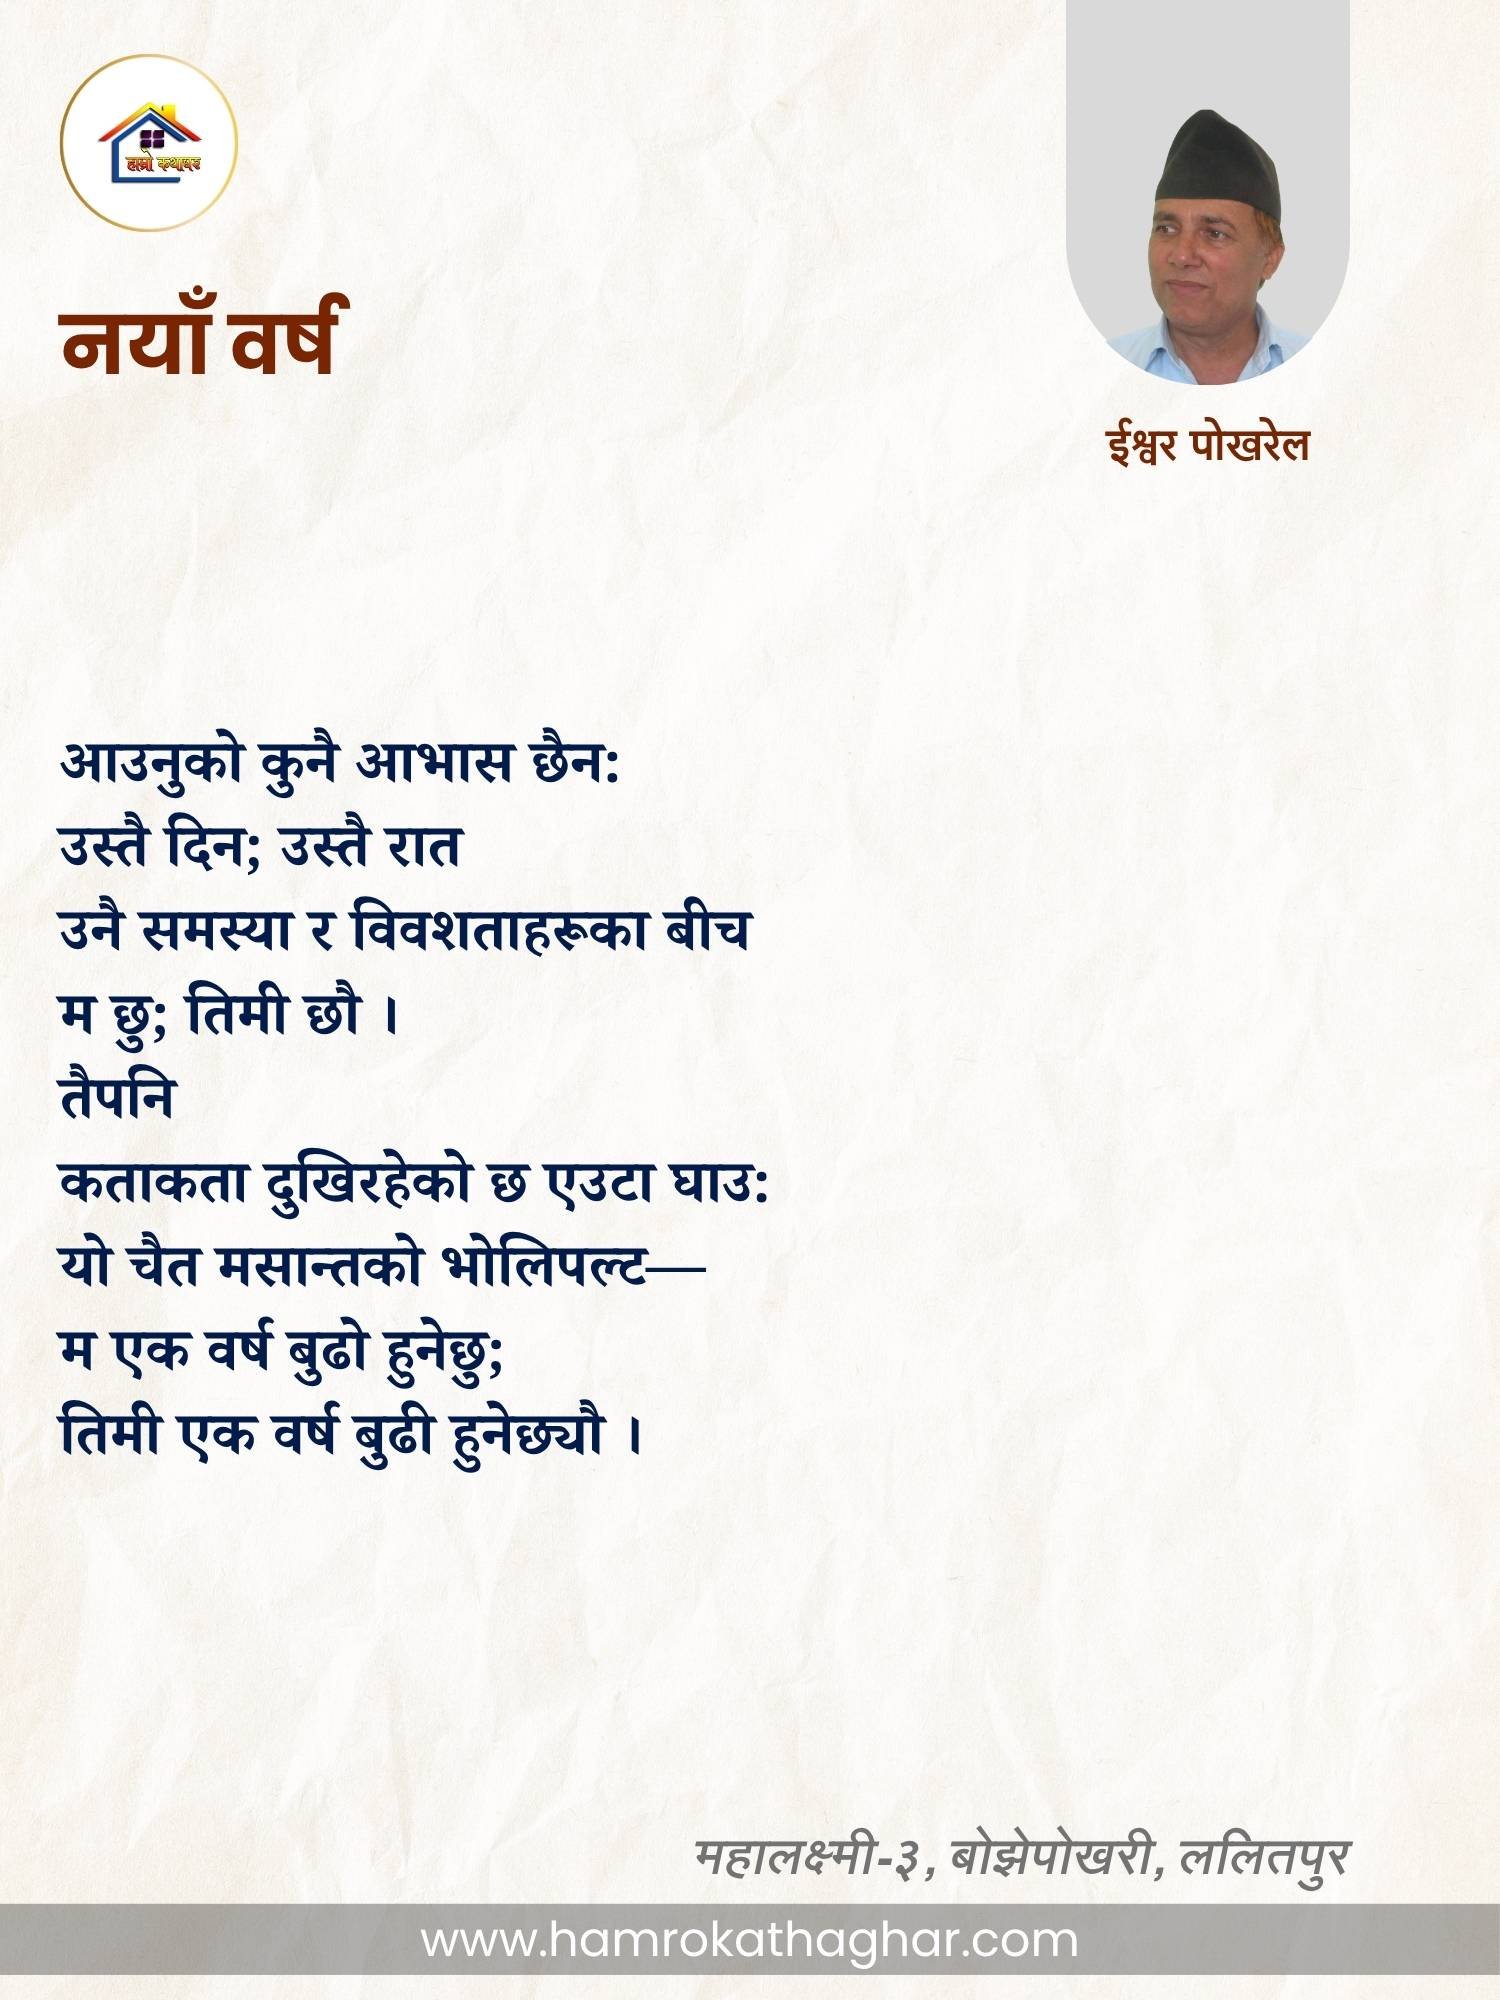 हाम्रो कथाघर
नयाँ वर्ष
ईश्वर पोखरेल
आउनुको कुनै आभास छैन:
उस्तै दिन; उस्तै रात
उनै समस्या र विवशताहरूका बीच
म छु; तिमी छौ ।
तैपनि
कताकता दुखिरहेको छ एउटा घाउ:
यो चैत मसान्तको भोलिपल्ट—
म एक वर्ष बुढो हुनेछु;
तिमी एक वर्ष बुढी हुनेछ्यौ ।
महालक्ष्मी-३, बोझेपोखरी, ललितपुर
www.hamrokathaghar.com